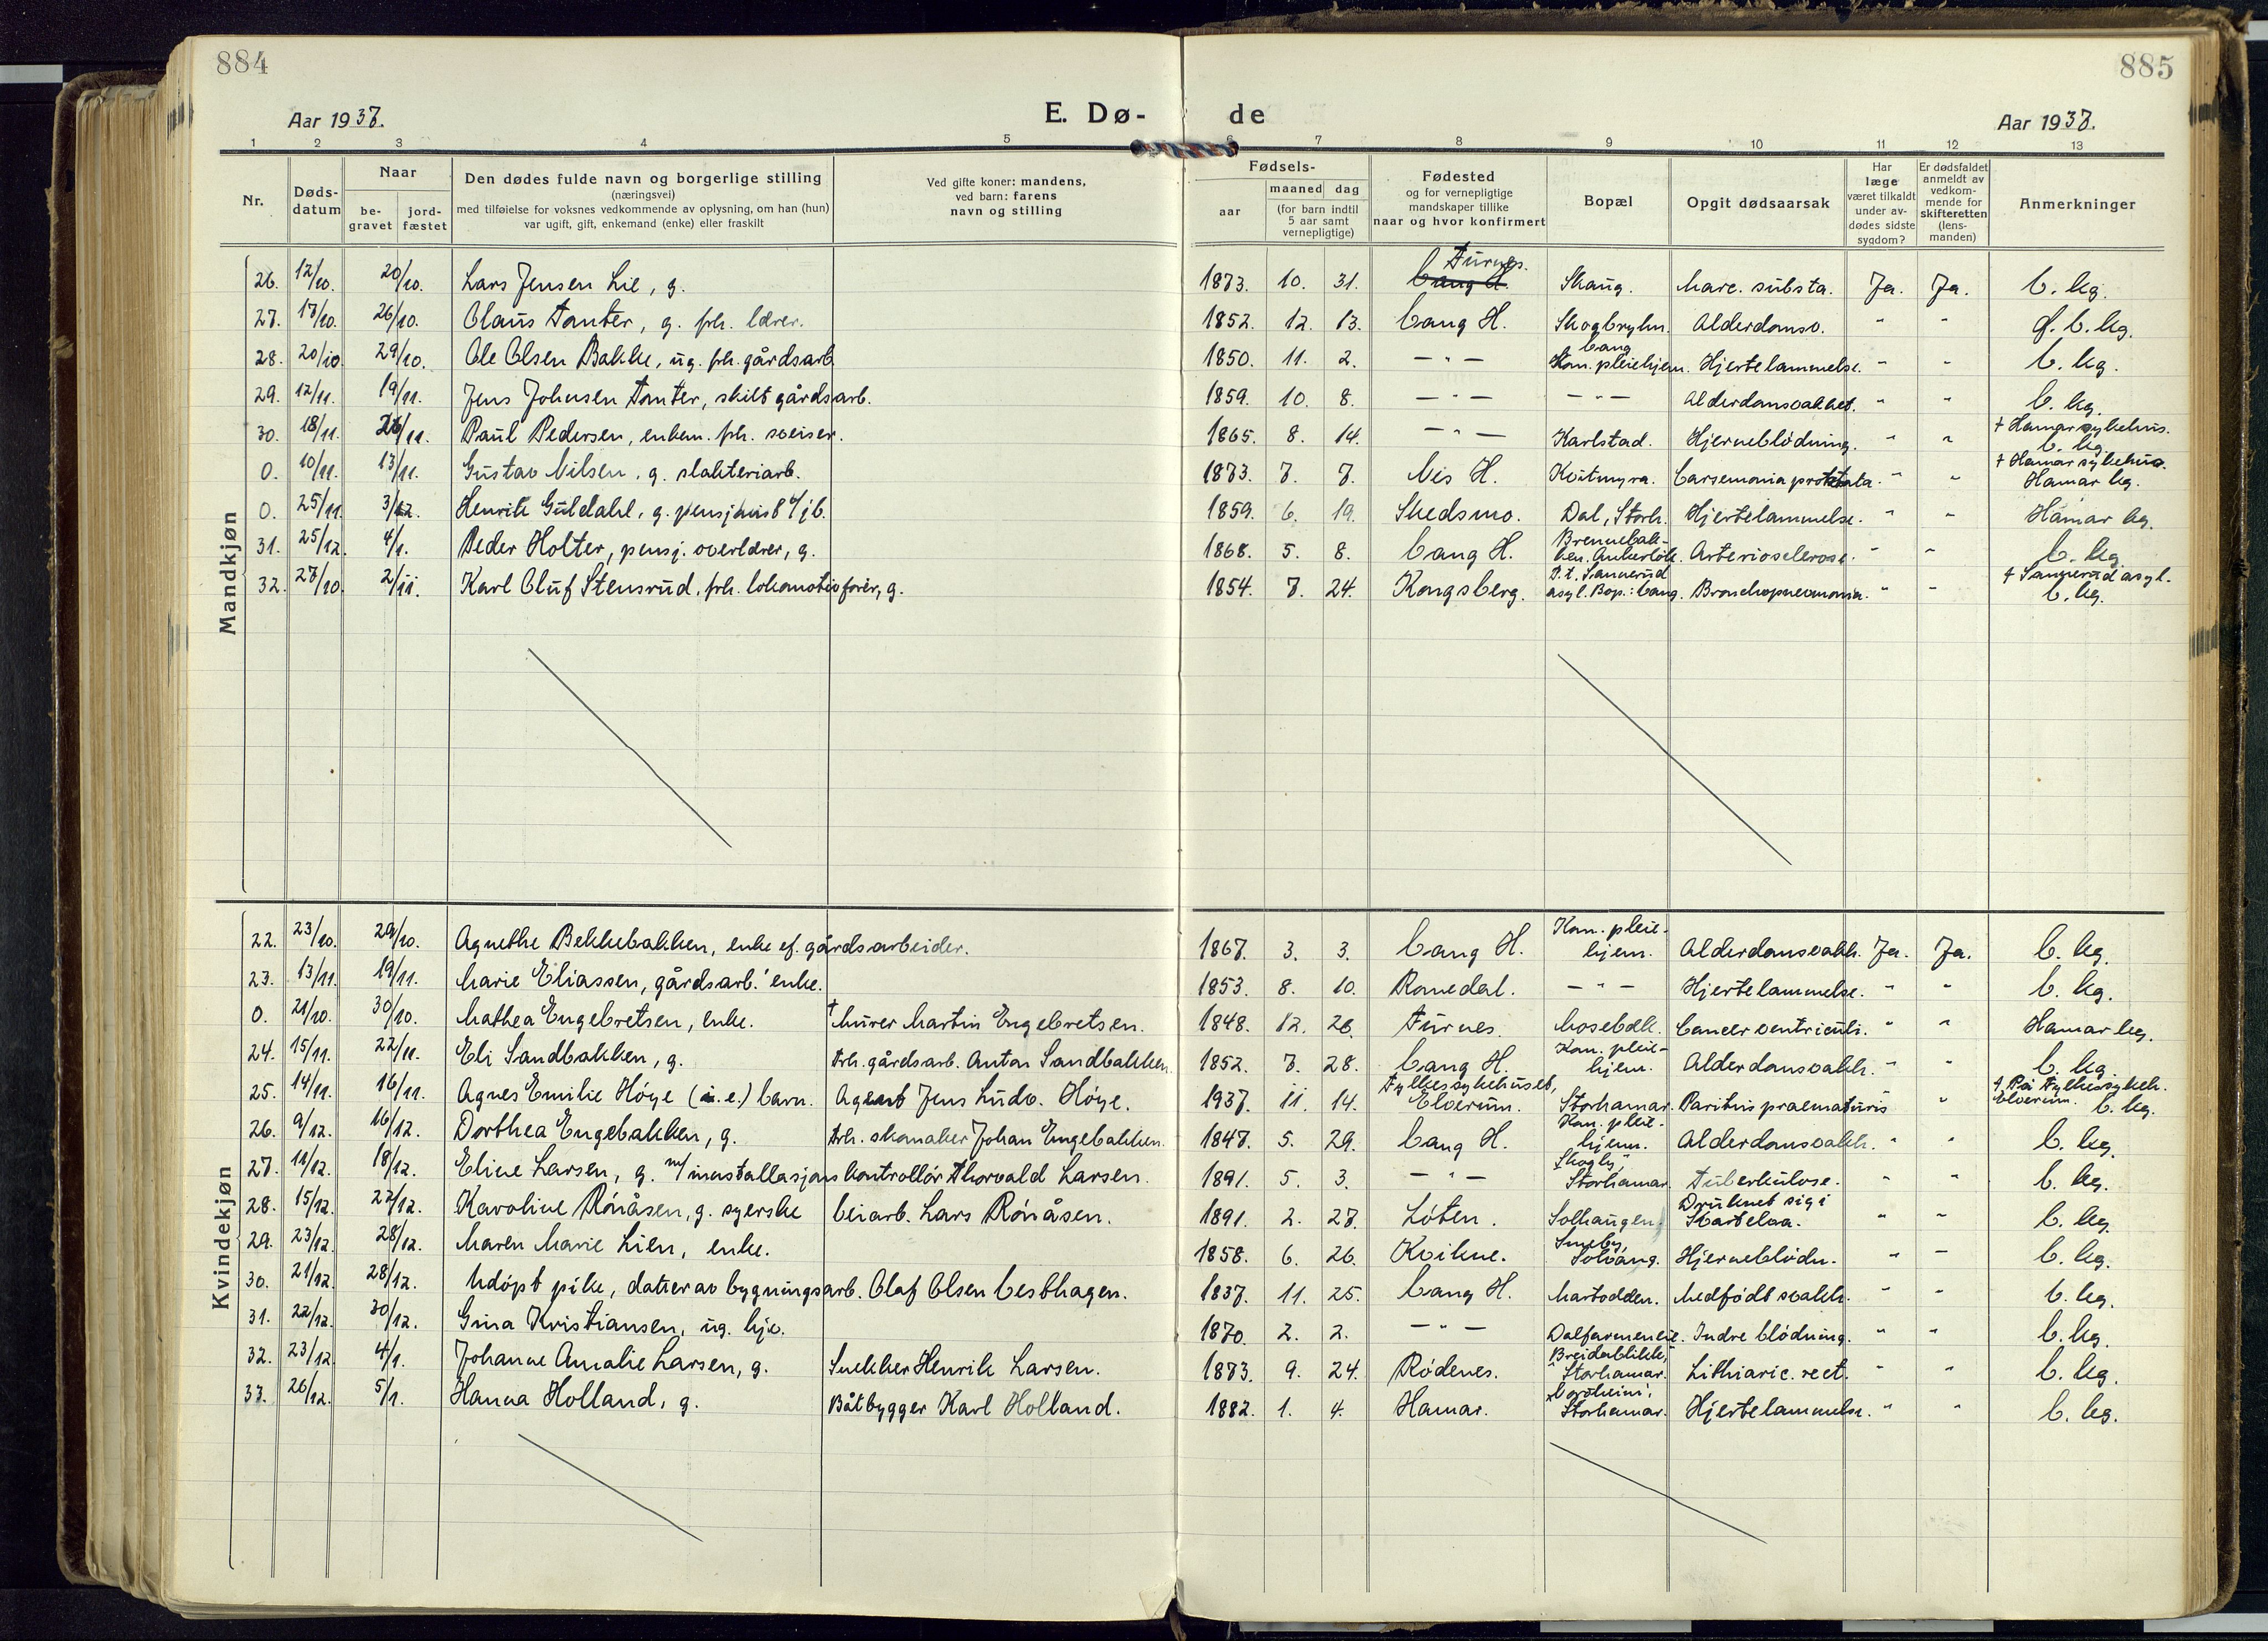 884
885
Aar 1937.
E. Dø-
de
Aar 1937.
1 2 3 4 5 6 7 8 9 10 11 12 13
Nr.
Døds-
datum
Naar
be-
gravet
jord-
fæstet
Den dødes fulde navn og borgerlige stilling
(næringsvei)
med tilføielse for voksnes vedkommende av oplysning, om han (hun)
var ugift, gift, enkemand (enke) eller fraskilt
Ved gifte koner: mandens,
ved barn: farens
navn og stilling
Fødsels-
aar
maaned dag
(for barn indtil
5 aar samt
vernepligtige)
Fødested
og for vernepligtige
mandskaper tillike
naar og hvor konfirmert
Bopæl
Opgit dødsaarsak
Har
læge
været tilkaldt
under av-
dødes sidste
sygdom?
Er dødsfaldet
anmeldt av
vedkom-
mende for
skifteretten
(lens-
manden)
Anmerkninger
Mandkjøn
Furnes.
26. 12/10. 20/10. Lars Jensen Lie, g. 1873. 10. 31. Vang H. Skaug. Marc. substa. Ja. Ja. V. kg.
27. 17/10. 26/10. Olaus Tomter, g. frh. lærer. 1852. 12. 13. Vang H. Alderdomsv. " "
Vang
28. 20/10. 29/10. Ole Olsen Bakke, ug. frh. gårdsarb. 1850. 11. 2. — " — Kom. pleiehjem. Hjertelammelse. " " V. kg.
29. 12/11. 19/11. Jens Johnsen Tomter, skilt gårdsarb. 1859. 10. 8. — " — — " — Alderdomsvakhet. " " V. kg.
† Hamar sykehus.
30. 18/11. 26/11. Paul Pedersen, enkem. frh. sveiser. 1865. 8. 14. — " — Karlstad. Hjerneblødning. " " V. kg.
† Hamar sykehus.
0. 10/11. 13/11. Gustav Nilsen, g. slakteriarb. 1873. 7. 7. Nes H. Koutmyra. Carsemonia prostata. " " Hamar kg.
0. 25/11. 3/12. Henrik Guldahl, g. 1859. 6. 19. Skedsmo. Dal, Storh. Hjertelammelse. " " Hamar kg.
Brennebak-
31. 25/12. 4/1. Peder Holter, pensj. overlærer, g. 1868. 5. 8. Vang H. ken, Ankerløk. Arteriosclerose. " " V. kg.
D. t. Sannerud † Sannerud asyl.
32. 27/10. 2/11. Karl Oluf Stensrud, frh. lokomotivfører, g. 1854. 7. 24. Kongsberg. asyl. Bop.: Vang. Bronchopneomonia. " " V. kg.
Kvindekjøn
Kom. pleie-
22. 23/10. 29/10. Agnethe Bekkebakken, enke ef. gårdsarbeider. 1867. 3. 3. Vang H. hjem. Alderdomsvakh. Ja. Ja. V. kg.
23. 13/11. 19/11. Marie Eliassen, gårdsarb.' enke. 1853. 8. 10. Romedal. — " — Hjertelammelse. " " V. kg.
0. 21/10. 30/10. Mathea Engebretsen, enke. † Murer Martin Engebretsen. 1848. 12. 26. Furnes. Mosebekk. Cancer ventriculi. " " Hamar kg.
Kom. pleie-
24. 15/11. 22/11. Eli Sandbakken, g. Frh. gårdsarb. Anton Sandbakken 1852. 7. 28. Vang H. hjem. Alderdomsvakh. " " V. kg.
Fylkessykehuset, † På Fylkessykeh.
25. 14/11. 16/11. Agnes Emilie Høye (i. e.) barn. Agent Jens Ludv. Høye. 1937. 11. 14. Elverum. Storhamar. Paritus praematuris " Elverum. V. kg.
Kom. pleie-
26. 9/12. 16/12. Dorthea Engebakken, g. Frh. skomaker Johan Engebakken. 1847. 5. 29. Vang H. hjem. Alderdomsvakh. " " V. kg.
Skogly,
27. 11/12. 18/12. Eline Larsen, g. m/ innstallasjonskontrollør Thorvald Larsen. 1891. 5. 3. — " — Storhamar. Tuberkulose. " " V. kg.
Druknet sig i
28. 15/12. 22/12. Karoline Rønåsen, g. syerske Veiarb. Lars Rønåsen. 1891. 2. 27. Løten. Solhaugen. Svartelva. " " V. kg.
Smeby,
29. 23/12. 28/12. Maren Marie Lien, enke. 1858. 6. 26. Kvikne. Solvang. Hjerneblødn. " " V. kg.
30. 21/12. 28/12. Udøpt pike, datter av bygningsarb. Olaf Olsen Vesthagen. 1937. 11. 25. Vang H. Martodden. Medfødt svakh. " " V. kg.
31. 22/12. 30/12. Gina Kristiansen, ug. hjv. 1870. 2. 2. — " — Dalfarmeneie. Indre blødning. " " V. kg.
Breidablikk,
32. 23/12. 4/1. Johanne Amalie Larsen, g. Snekker Henrik Larsen. 1873. 9. 24. Rødenes. Storhamar. " " V. kg.
33. 26/12. 5/1. Hanna Holland, g. Båtbygger Karl Holland. 1882. 1. 4. Hamar. Storhamar. Hjertelammelse. " " V. kg.